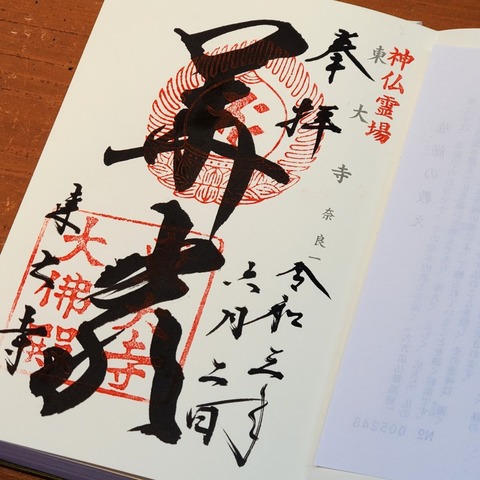 神仏霊場
東大寺
奈良一
奉拝
令和三年
六月二日
華嚴
東大寺
大佛殿
東大寺